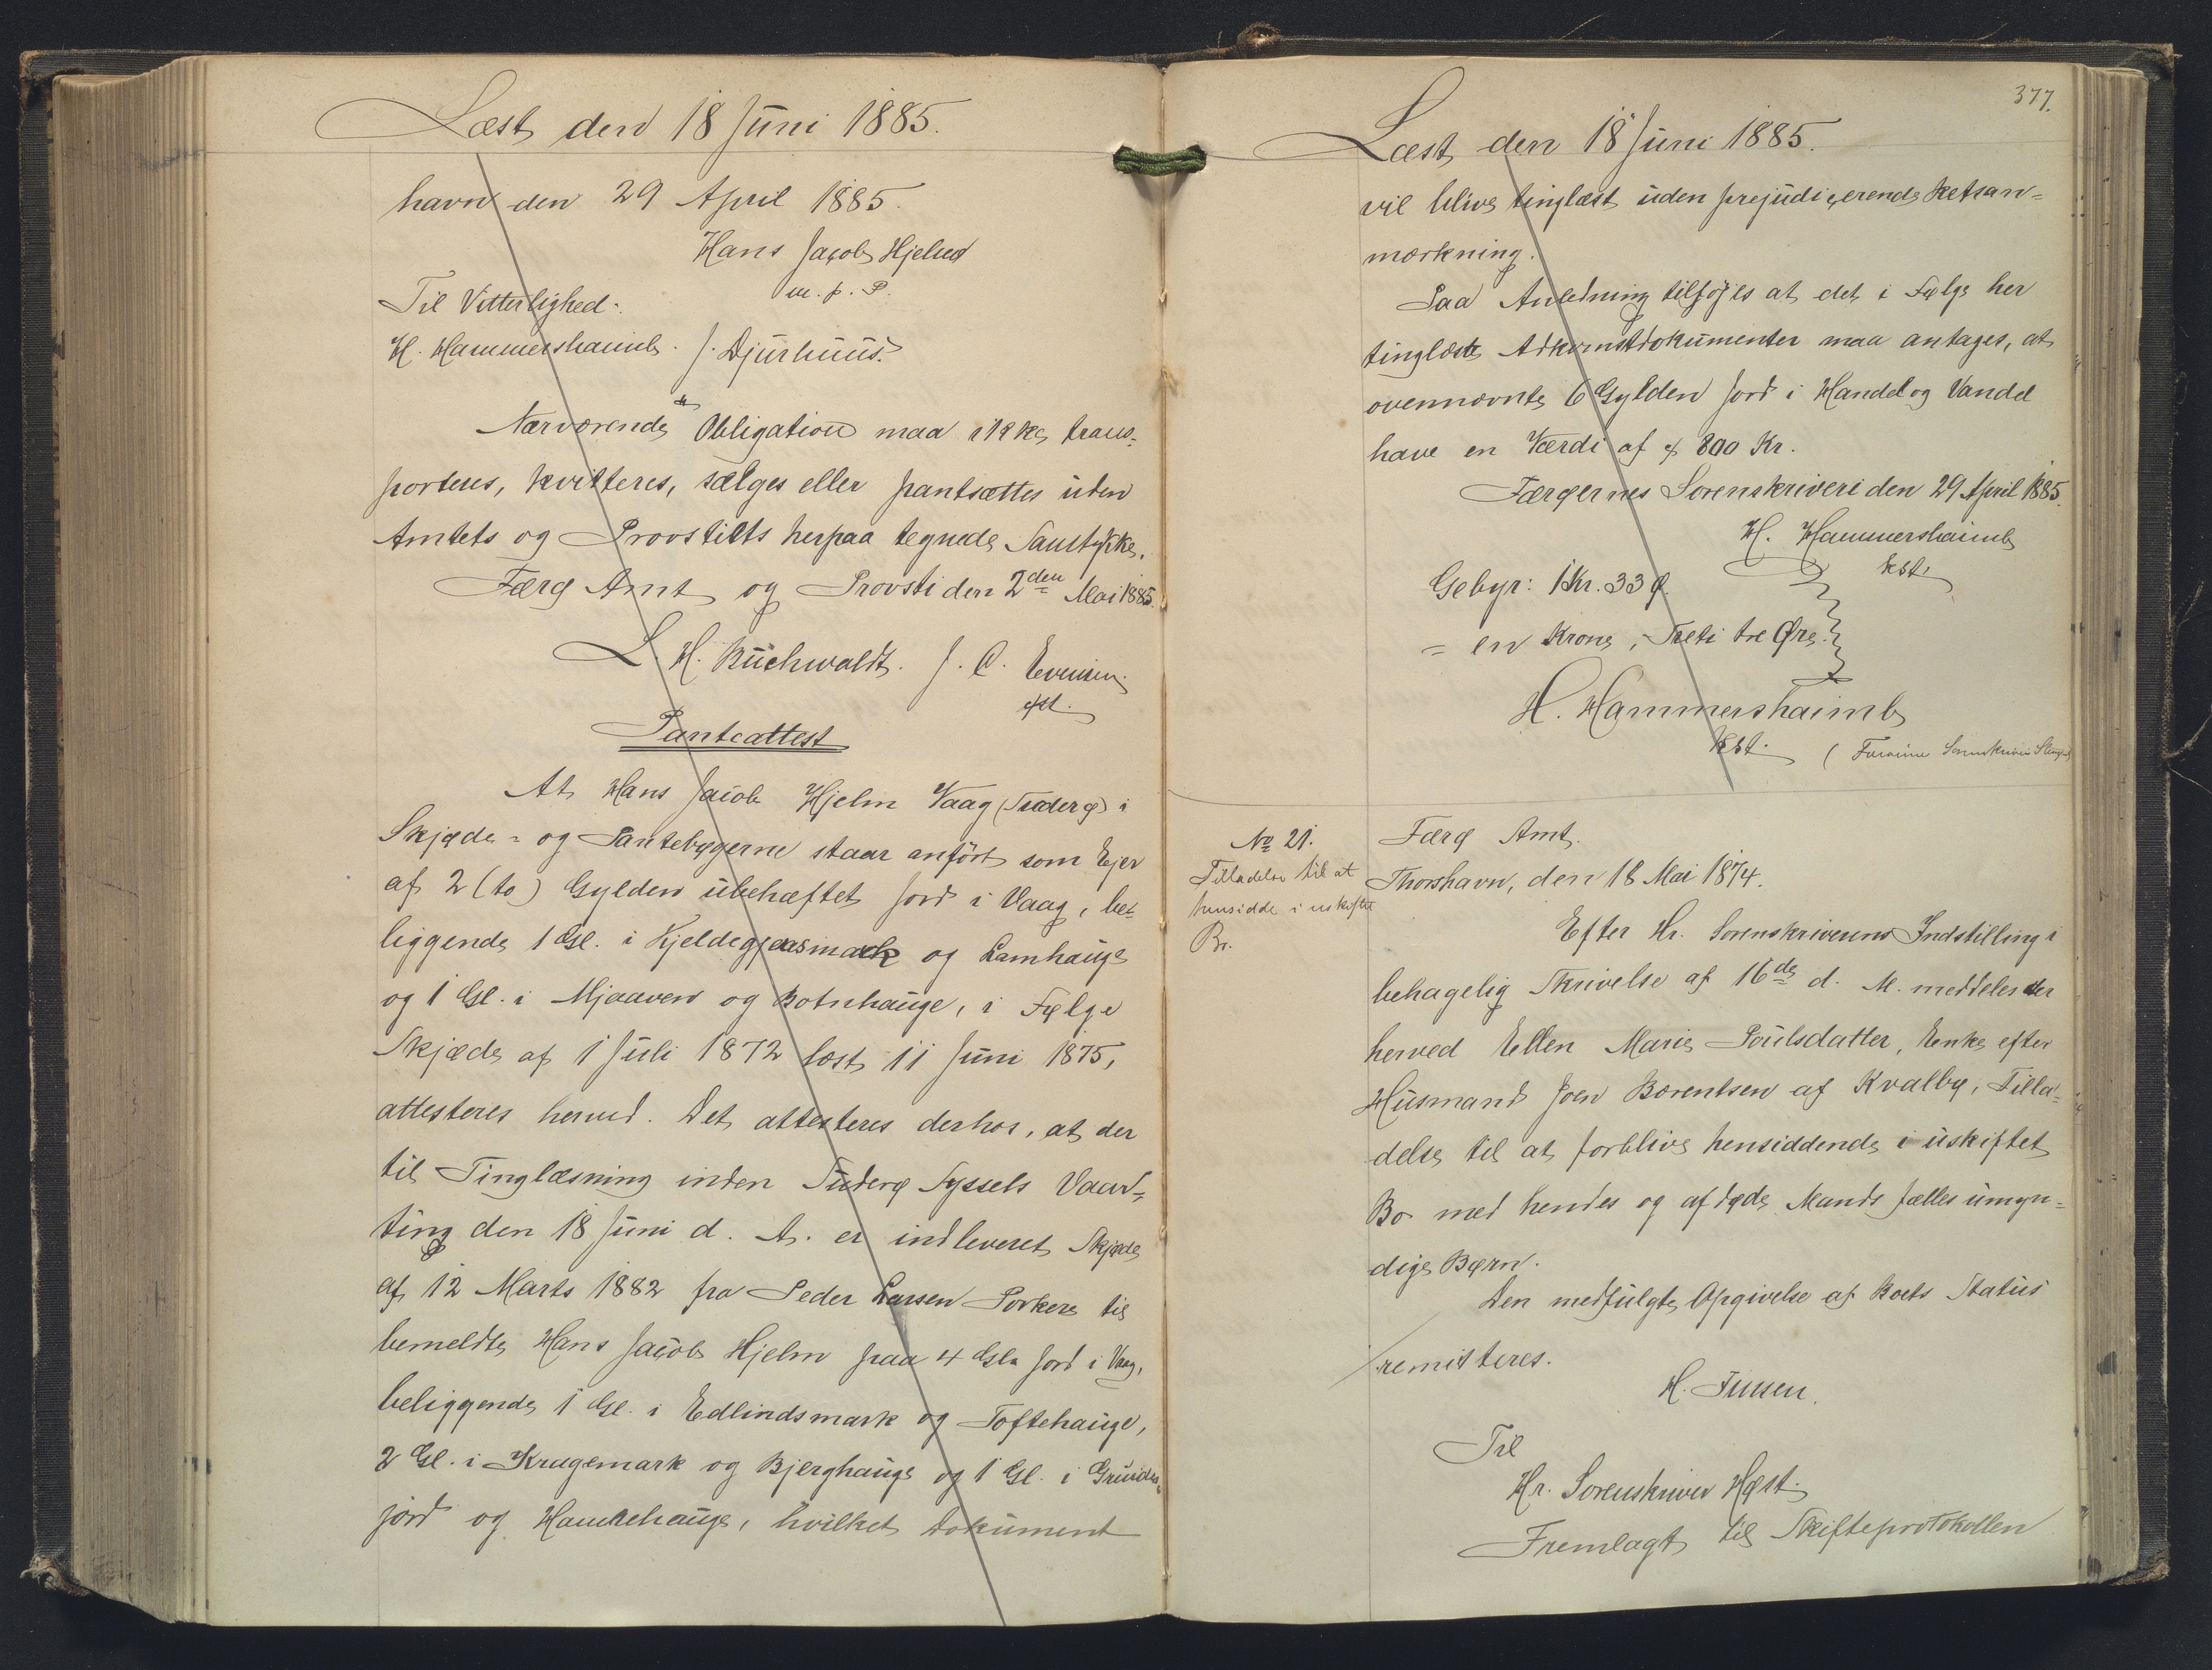 Læst den 18 Juni 1885.
havn den 29 April 1885.
Hans Jacob Hjelm
m. p. P.
Til Vitterlighed:
H. Hammershaimb. J. Djurhuus.
Nærværende Obligation maa ikke trans-
porteres, kvitteres, sælges eller pantsættes uden
Amtets og Provstiets herpaa tegnede Samtykke.
Færø Amt og Provsti den 2den Mai 1885.
L. H. Buchwaldt. J. C. Evensen
cst.
Panteattest
At Hans Jacob Hjelm Vaag (Suderø) i
Skjøde- og Pantebøgerne staar anført som Ejer
af 2 (to) Gylden ubehæftet Jord i Vaag, be-
liggende 1 Gl. i Kjeldegjærsmark og Lamhauge
og 1 Gl. i Mjaaven og Botnhauge, i Følge
Skjøde af 1 Juli 1872 læst 11 Juni 1875,
attesteres herved. Det attesteres derhos, at der
til Tinglæsning inden Suderø Syssels Vaar-
ting den 18 Juni d. A. er indleveret Skjøde
af 12 Marts 1882 fra Peder Larsen Porkere til
bemeldte Hans Jacob Hjelm paa 4 Gl. Jord i Vaag,
beliggende 1 Gl. i Edlindsmark og Toftehauge,
2 Gl. i Kragemark og Bjerghauge og 1 Gl. i Grunde-
jord og Hamrehauge, hvilket Dokument
377.
Læst den 18 Juni 1885.
vil blive tinglæst uden prejudicerende Retsan-
mærkning.
Paa Anledning tilføjes at det i Følge her
tinglæste Adkomstdokumenter maa antages, at
ovennævnte 6 Gylden Jord i Handel og Vandel
have en Værdi af c. 800 Kr.
Færøernes Sorenskriveri den 29 April 1885.
H. Hammershaimb
kst.
Gebyr: 1 Kr. 33 Ø.
= en Krone, Treti tre Øre.
H. Hammershaimb
kst. (
No 21.
Tilladelse til at
hensidde i uskiftet
Bo.
Færø Amt.
Thorshavn, den 18 Mai 1874.
Efter Hr. Sorenskriverens Indstilling i
behagelig Skrivelse af 16de d. M. meddeles der
herved Ellen Marie Poulsdatter, Enke efter
Husmand Joen Bærentsen af Kvalbø, Tilla-
delse til at forblive hensiddende i uskiftet
Bo med hendes og afdøde Mands fælles umyn-
dige Børn.
Den medfulgte Opgivelse af Boets Status
remitteres.
H. Finsen.
Til
Hr. Sorenskriver Høst.
Fremlagt til Skifteprotokollen